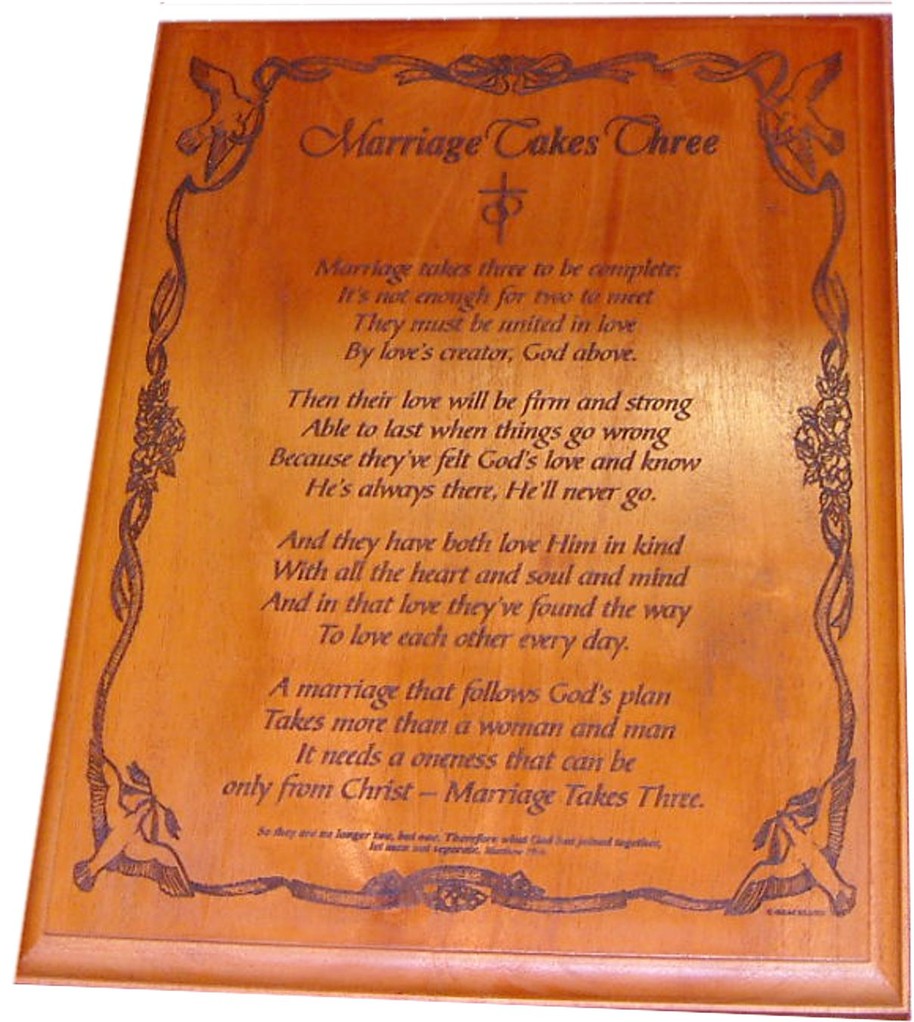 Marriage Takes Three
Marriage takes three to be complete;
It's not enough for two to meet
They must be united in love
By love's creator, God above.
Then their love will be firm and strong
Able to last when things go wrong
Because they've felt God's love and know
He's always there, He'll never go.
And they have both love Him in kind
With all the heart and soul and mind
And in that love they've found the way
To love each other every day.
A marriage that follows God's plan
Takes more than a woman and man
It needs a oneness that can be
only from Christ – Marriage Takes Three.
So they are no longer two, but one. Therefore what God has joined together,
let man not separate. Matthew